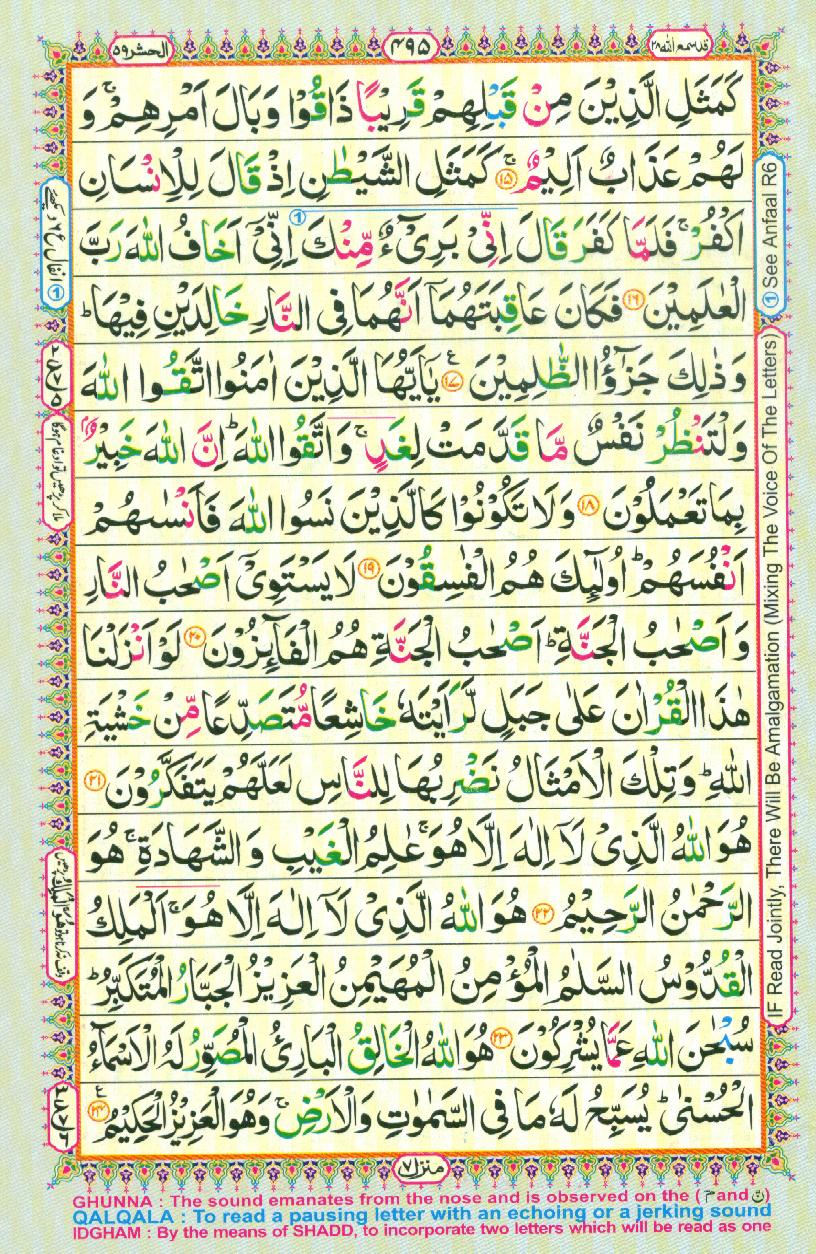 قد سمع اللہ ۲۸
۴۹۵
الحشر ۵۹
كَمَثَلِ الَّذِيْنَ مِنْ قَبْلِهِمْ قَرِيْبًا ذَاقُوْا وَبَالَ اَمْرِهِمْ ۚ وَ
لَهُمْ عَذَابٌ اَلِيْمٌ ۚ ۝۱۵ كَمَثَلِ الشَّيْطٰنِ اِذْ قَالَ لِلْاِنْسَانِ
اكْفُرْ ۚ فَلَمَّا كَفَرَ قَالَ اِنِّيْ بَرِيْٓءٌ مِّنْكَ اِنِّيْٓ اَخَافُ اللّٰهَ رَبَّ
الْعٰلَمِيْنَ ۝۱۶ فَكَانَ عَاقِبَتَهُمَآ اَنَّهُمَا فِي النَّارِ خَالِدَيْنِ فِيْهَا ؕ
وَذٰلِكَ جَزٰٓؤُا الظّٰلِمِيْنَ ۝۱۷ ع يٰٓاَيُّهَا الَّذِيْنَ اٰمَنُوا اتَّقُوا اللّٰهَ
وَلْتَنْظُرْ نَفْسٌ مَّا قَدَّمَتْ لِغَدٍ ۚ وَاتَّقُوا اللّٰهَ ؕ اِنَّ اللّٰهَ خَبِيْرٌۢ
بِمَا تَعْمَلُوْنَ ۝۱۸ وَلَا تَكُوْنُوْا كَالَّذِيْنَ نَسُوا اللّٰهَ فَاَنْسٰىهُمْ
اَنْفُسَهُمْ ؕ اُولٰٓئِكَ هُمُ الْفٰسِقُوْنَ ۝۱۹ لَا يَسْتَوِيْٓ اَصْحٰبُ النَّارِ
وَاَصْحٰبُ الْجَنَّةِ ؕ اَصْحٰبُ الْجَنَّةِ هُمُ الْفَآئِزُوْنَ ۝۲۰ لَوْ اَنْزَلْنَا
هٰذَا الْقُرْاٰنَ عَلٰى جَبَلٍ لَّرَاَيْتَهٗ خَاشِعًا مُّتَصَدِّعًا مِّنْ خَشْيَةِ
اللّٰهِ ؕ وَتِلْكَ الْاَمْثَالُ نَضْرِبُهَا لِلنَّاسِ لَعَلَّهُمْ يَتَفَكَّرُوْنَ ۝۲۱
هُوَ اللّٰهُ الَّذِيْ لَآ اِلٰهَ اِلَّا هُوَ ۚ عٰلِمُ الْغَيْبِ وَالشَّهَادَةِ ۚ هُوَ
الرَّحْمٰنُ الرَّحِيْمُ ۝۲۲ هُوَ اللّٰهُ الَّذِيْ لَآ اِلٰهَ اِلَّا هُوَ ۚ اَلْمَلِكُ
الْقُدُّوْسُ السَّلٰمُ الْمُؤْمِنُ الْمُهَيْمِنُ الْعَزِيْزُ الْجَبَّارُ الْمُتَكَبِّرُ ؕ
سُبْحٰنَ اللّٰهِ عَمَّا يُشْرِكُوْنَ ۝۲۳ هُوَ اللّٰهُ الْخَالِقُ الْبَارِئُ الْمُصَوِّرُ لَهُ الْاَسْمَآءُ
الْحُسْنٰى ؕ يُسَبِّحُ لَهٗ مَا فِي السَّمٰوٰتِ وَالْاَرْضِ ۚ وَهُوَ الْعَزِيْزُ الْحَكِيْمُ ۝۲۴ ع
منزل ۷
① See Anfaal R6
IF Read Jointly, There Will Be Amalgamation (Mixing The Voice Of The Letters)
GHUNNA : The sound emanates from the nose and is observed on the ( مّ and نّ )
QALQALA : To read a pausing letter with an echoing or a jerking sound
IDGHAM : By the means of SHADD, to incorporate two letters which will be read as one